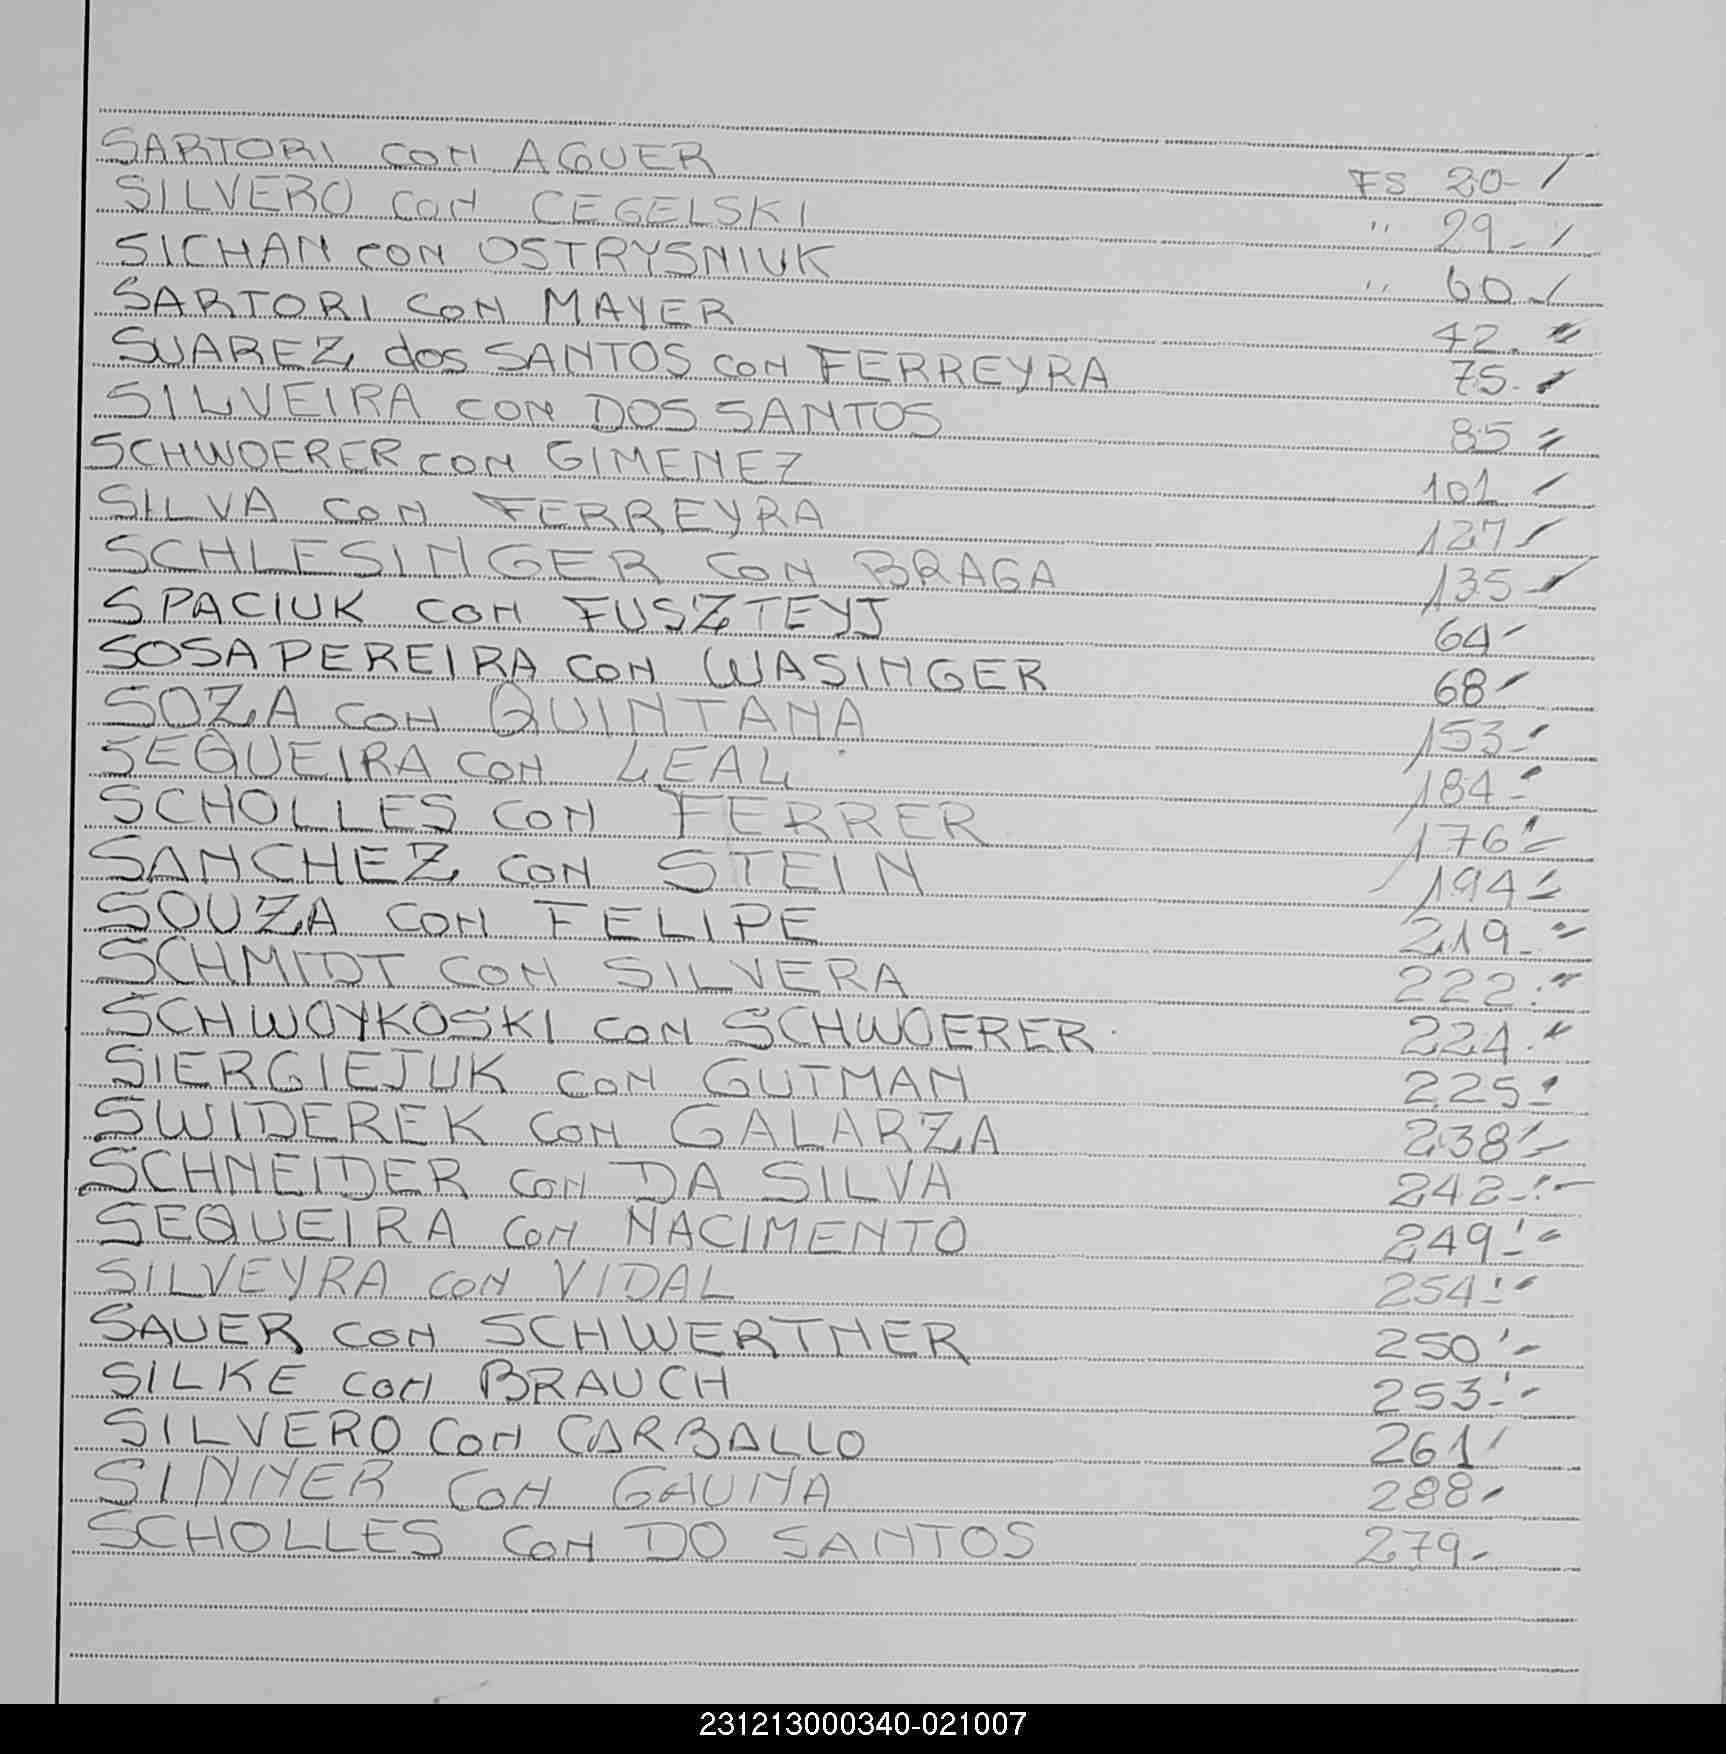 SARTORI con AGUER FS 20-
SILVERO con CEGELSKI " 29-
SICHAN con OSTRYSNIUK " 60-
SARTORI con MAYER 42.
SUAREZ dos SANTOS con FERREYRA 75-
SILVEIRA con DOS SANTOS 85
SCHWOERER con GIMENEZ 101
SILVA con FERREYRA 127
SCHLESINGER con BRAGA 135
SPACIUK con FUSZTEYJ 64-
SOSA PEREIRA con WASINGER 68-
SOZA con QUINTANA 153-
SEQUEIRA con LEAL 184-
SCHOLLES con FERRER 176-
SANCHEZ con STEIN 194-
SOUZA con FELIPE 219-
SCHMIDT con SILVERA 222-
SCHWOYKOSKI con SCHWOERER 224-
SIERGIEJUK con GUTMAN 225-
SWIDEREK con GALARZA 238-
SCHNEIDER con DA SILVA 242-
SEQUEIRA con NACIMENTO 249-
SILVEYRA con VIDAL 254-
SAUER con SCHWERTNER 250-
SILKE con BRAUCH 253-
SILVERO con CARBALLO 261
SINNER con GAUNA 288-
SCHOLLES con DO SANTOS 279-
231213000340-021007